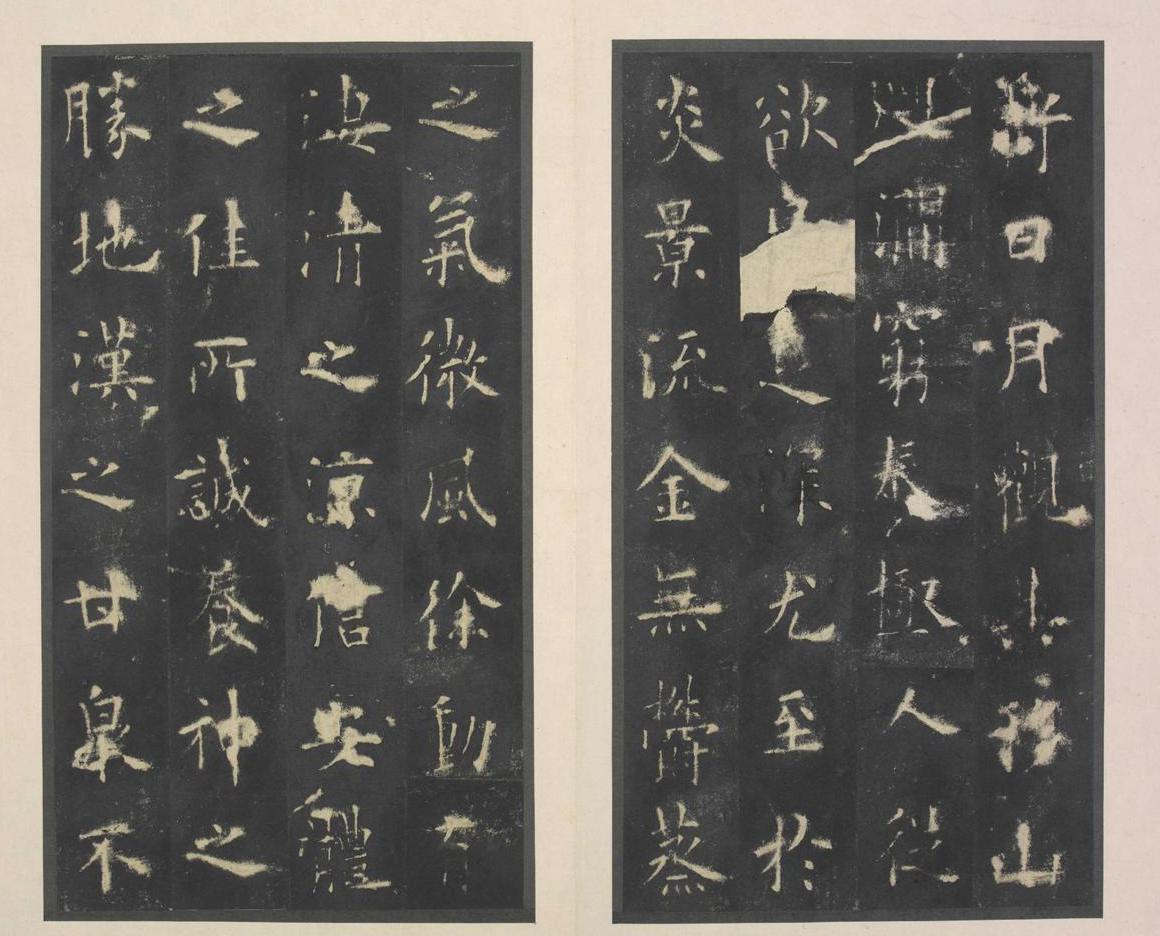 虧日月觀其移山
迴澗窮泰極人從
欲足深尤至於
炎景流金無鬱蒸
之氣微風徐動有
淒清之涼信安體
之佳所誠養神之
勝地漢之甘泉不